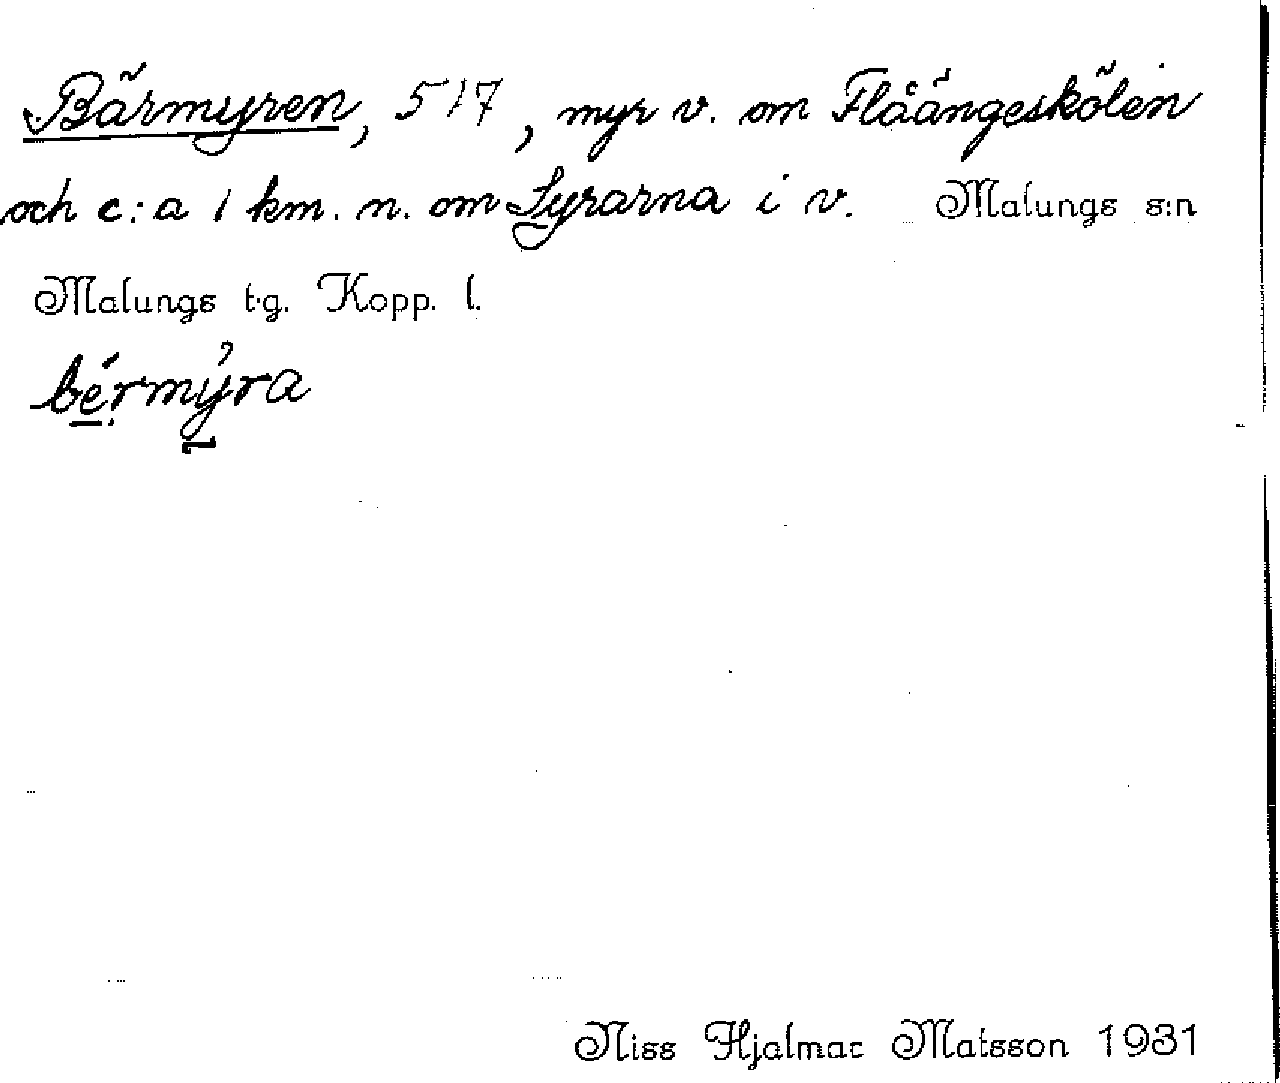 Bärmyren, 517, myr v. om Flåängeskölen
och c:a 1 km. n. om Syrarna i v. Malungs s:n
Malungs t.g. Kopp. l.
bérmýra
Niss Hjalmar Matsson 1931